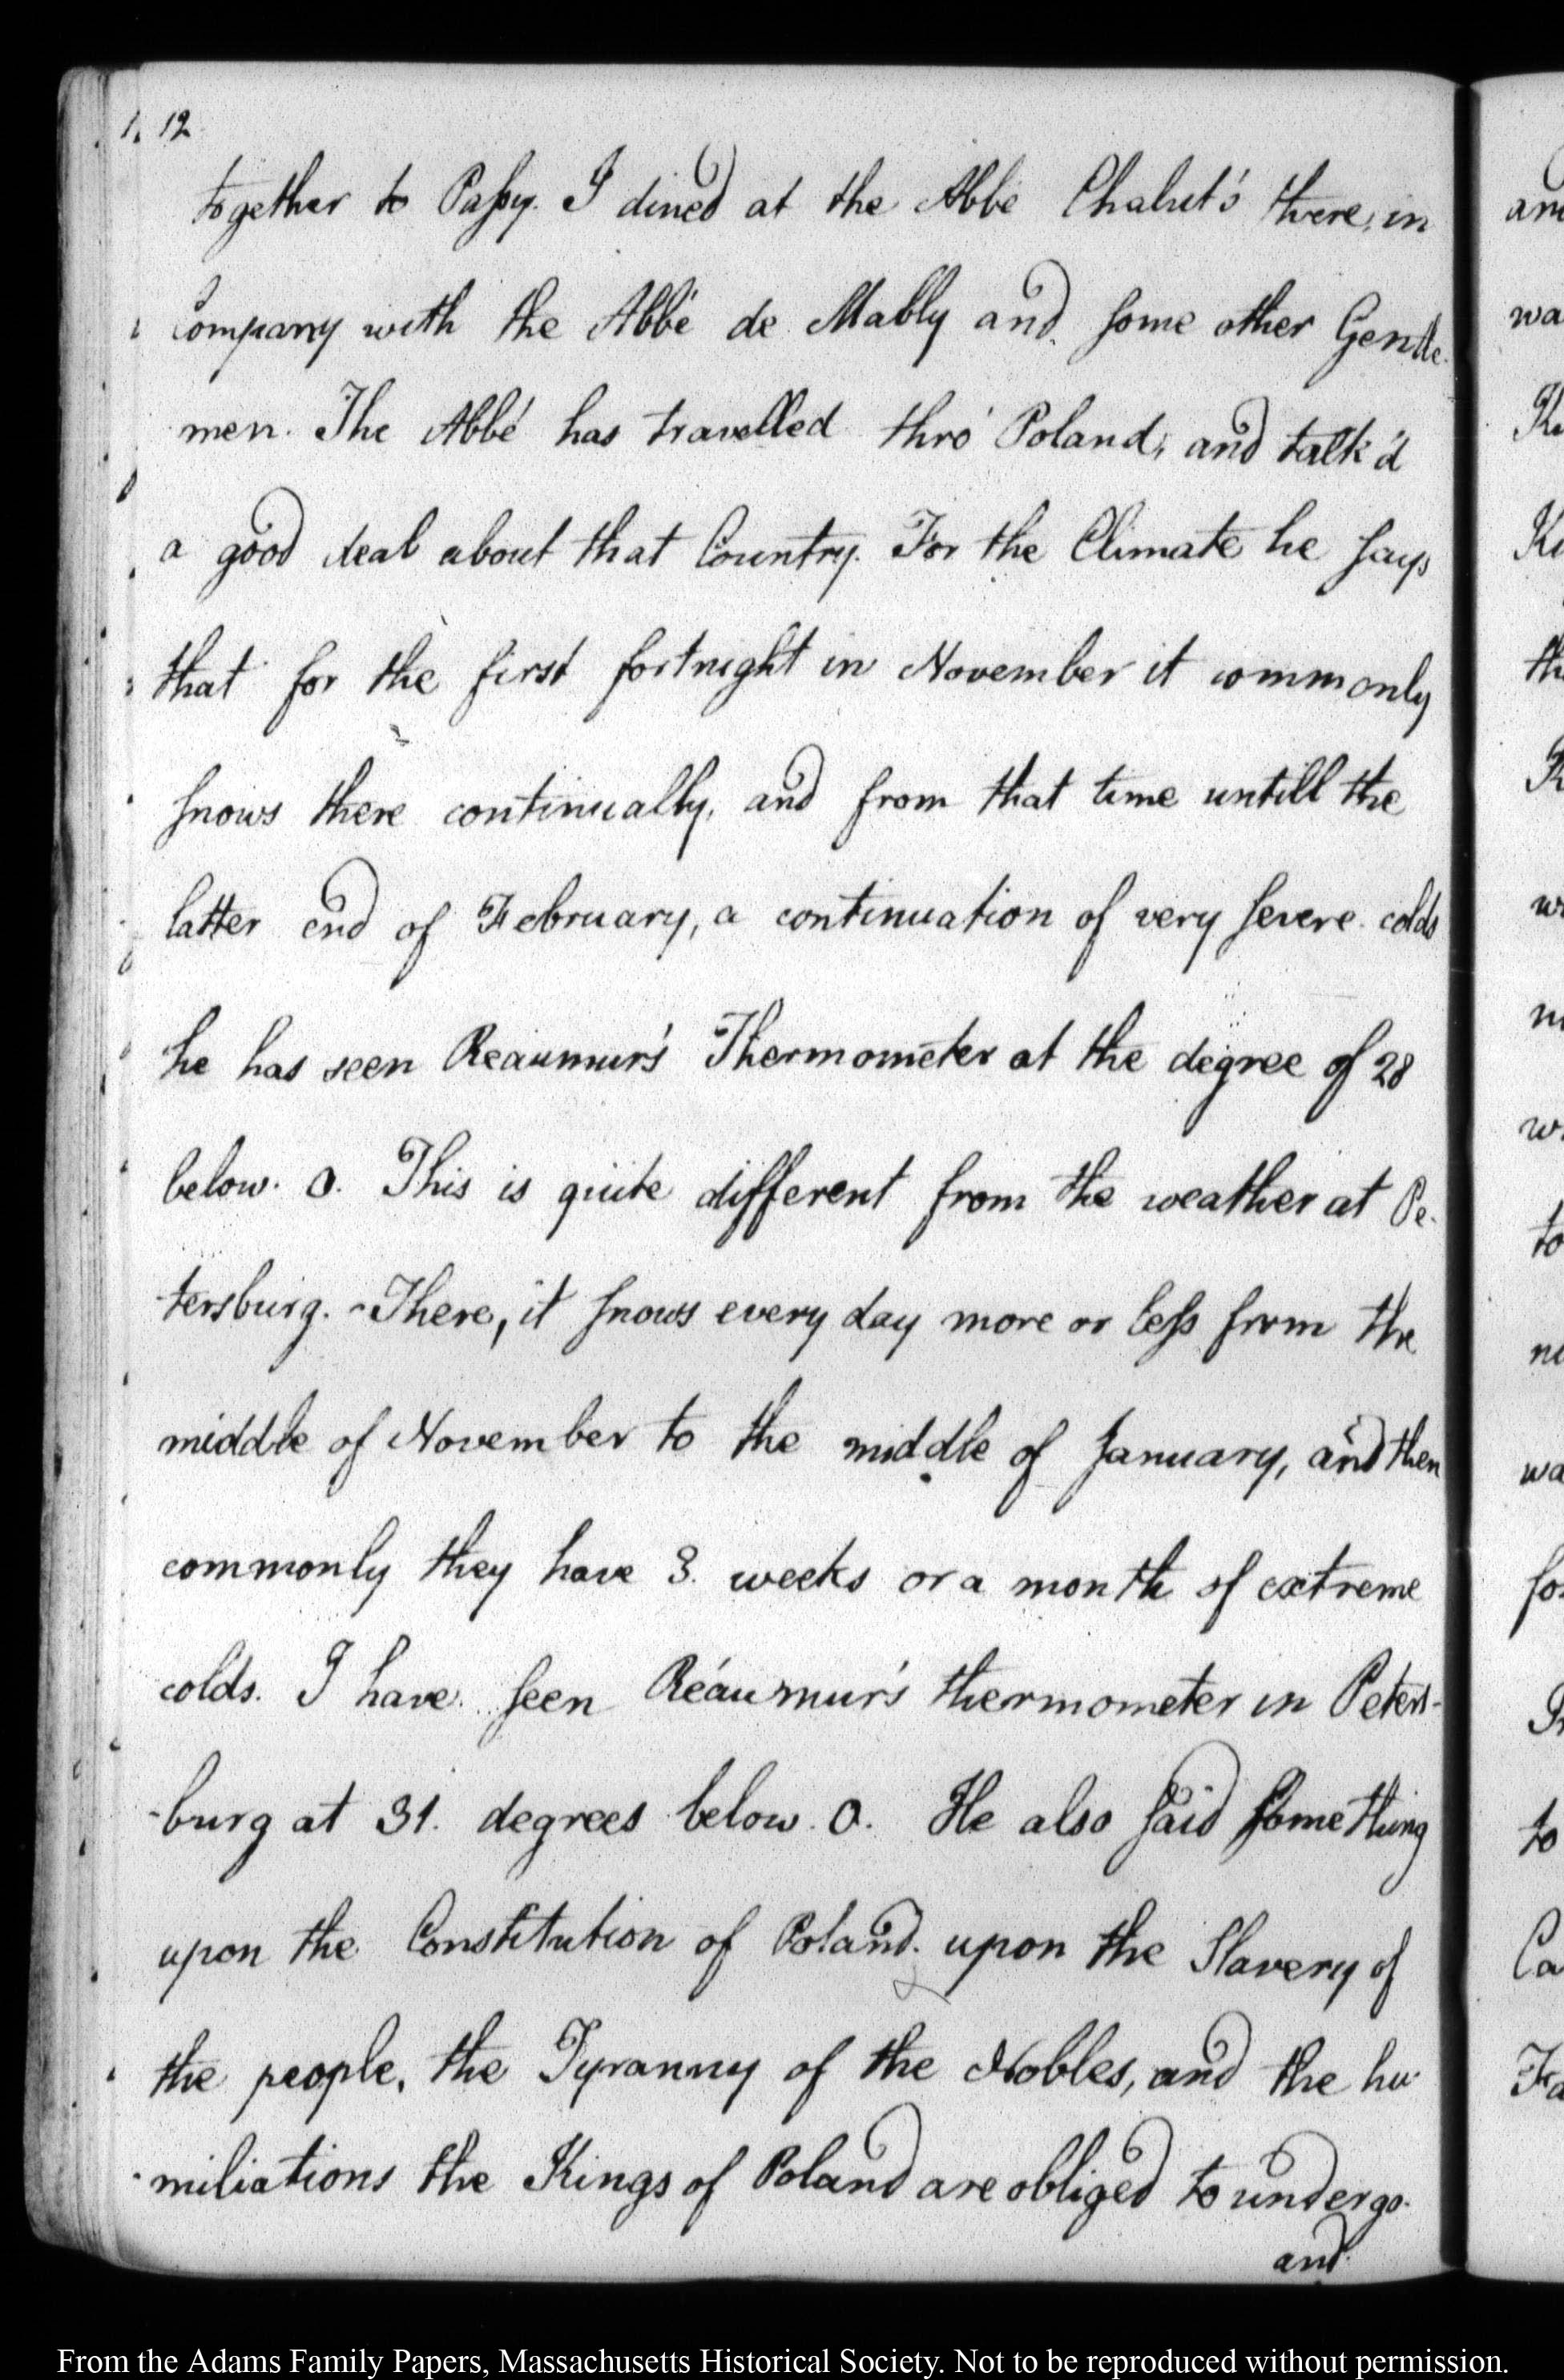 12
together to Passy. I dined at the Abbé Chalut's there, in
Company with the Abbé de Mably and some other Gentle-
men. The Abbé has travelled thro' Poland, and talk'd
a good deal about that Country. For the Climate he says
that for the first fortnight in November it commonly
snows there continually, and from that time untill the
latter end of February, a continuation of very severe colds
he has seen Reaumur's Thermometer at the degree of 28
below. 0. This is quite different from the weather at Pe-
tersburg. There, it snows every day more or less from the
middle of November to the middle of January, and then
commonly they have 3. weeks or a month of extreme
colds. I have seen Réaumur's thermometer in Peters-
-burg at 31. degrees below. 0. He also said something
upon the Constitution of Poland. upon the Slavery of
the people, the Tyranny of the Nobles, and the hu-
-miliations the Kings of Poland are obliged to undergo.
and
From the Adams Family Papers, Massachusetts Historical Society. Not to be reproduced without permission.